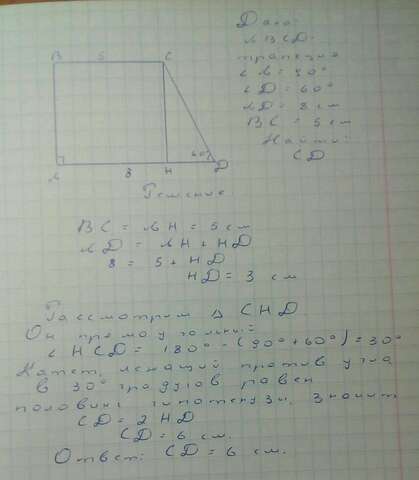 Дано:
ABCD-
трапеция
∠A = 90°
∠D = 60°
AD = 8 см
BC = 5 см
Найти:
CD
B 5 C
60°
A 8 H D
Решение.
BC = AH = 5 см
AD = AH + HD
8 = 5 + HD
HD = 3 см
Рассмотрим Δ CHD
Он прямоугольный
∠ HCD = 180° - (90° + 60°) = 30°
Катет, лежащий против угла
в 30° градусов равен
половине гипотенузы, значит
CD = 2 HD
CD = 6 см.
Ответ: CD = 6 см.